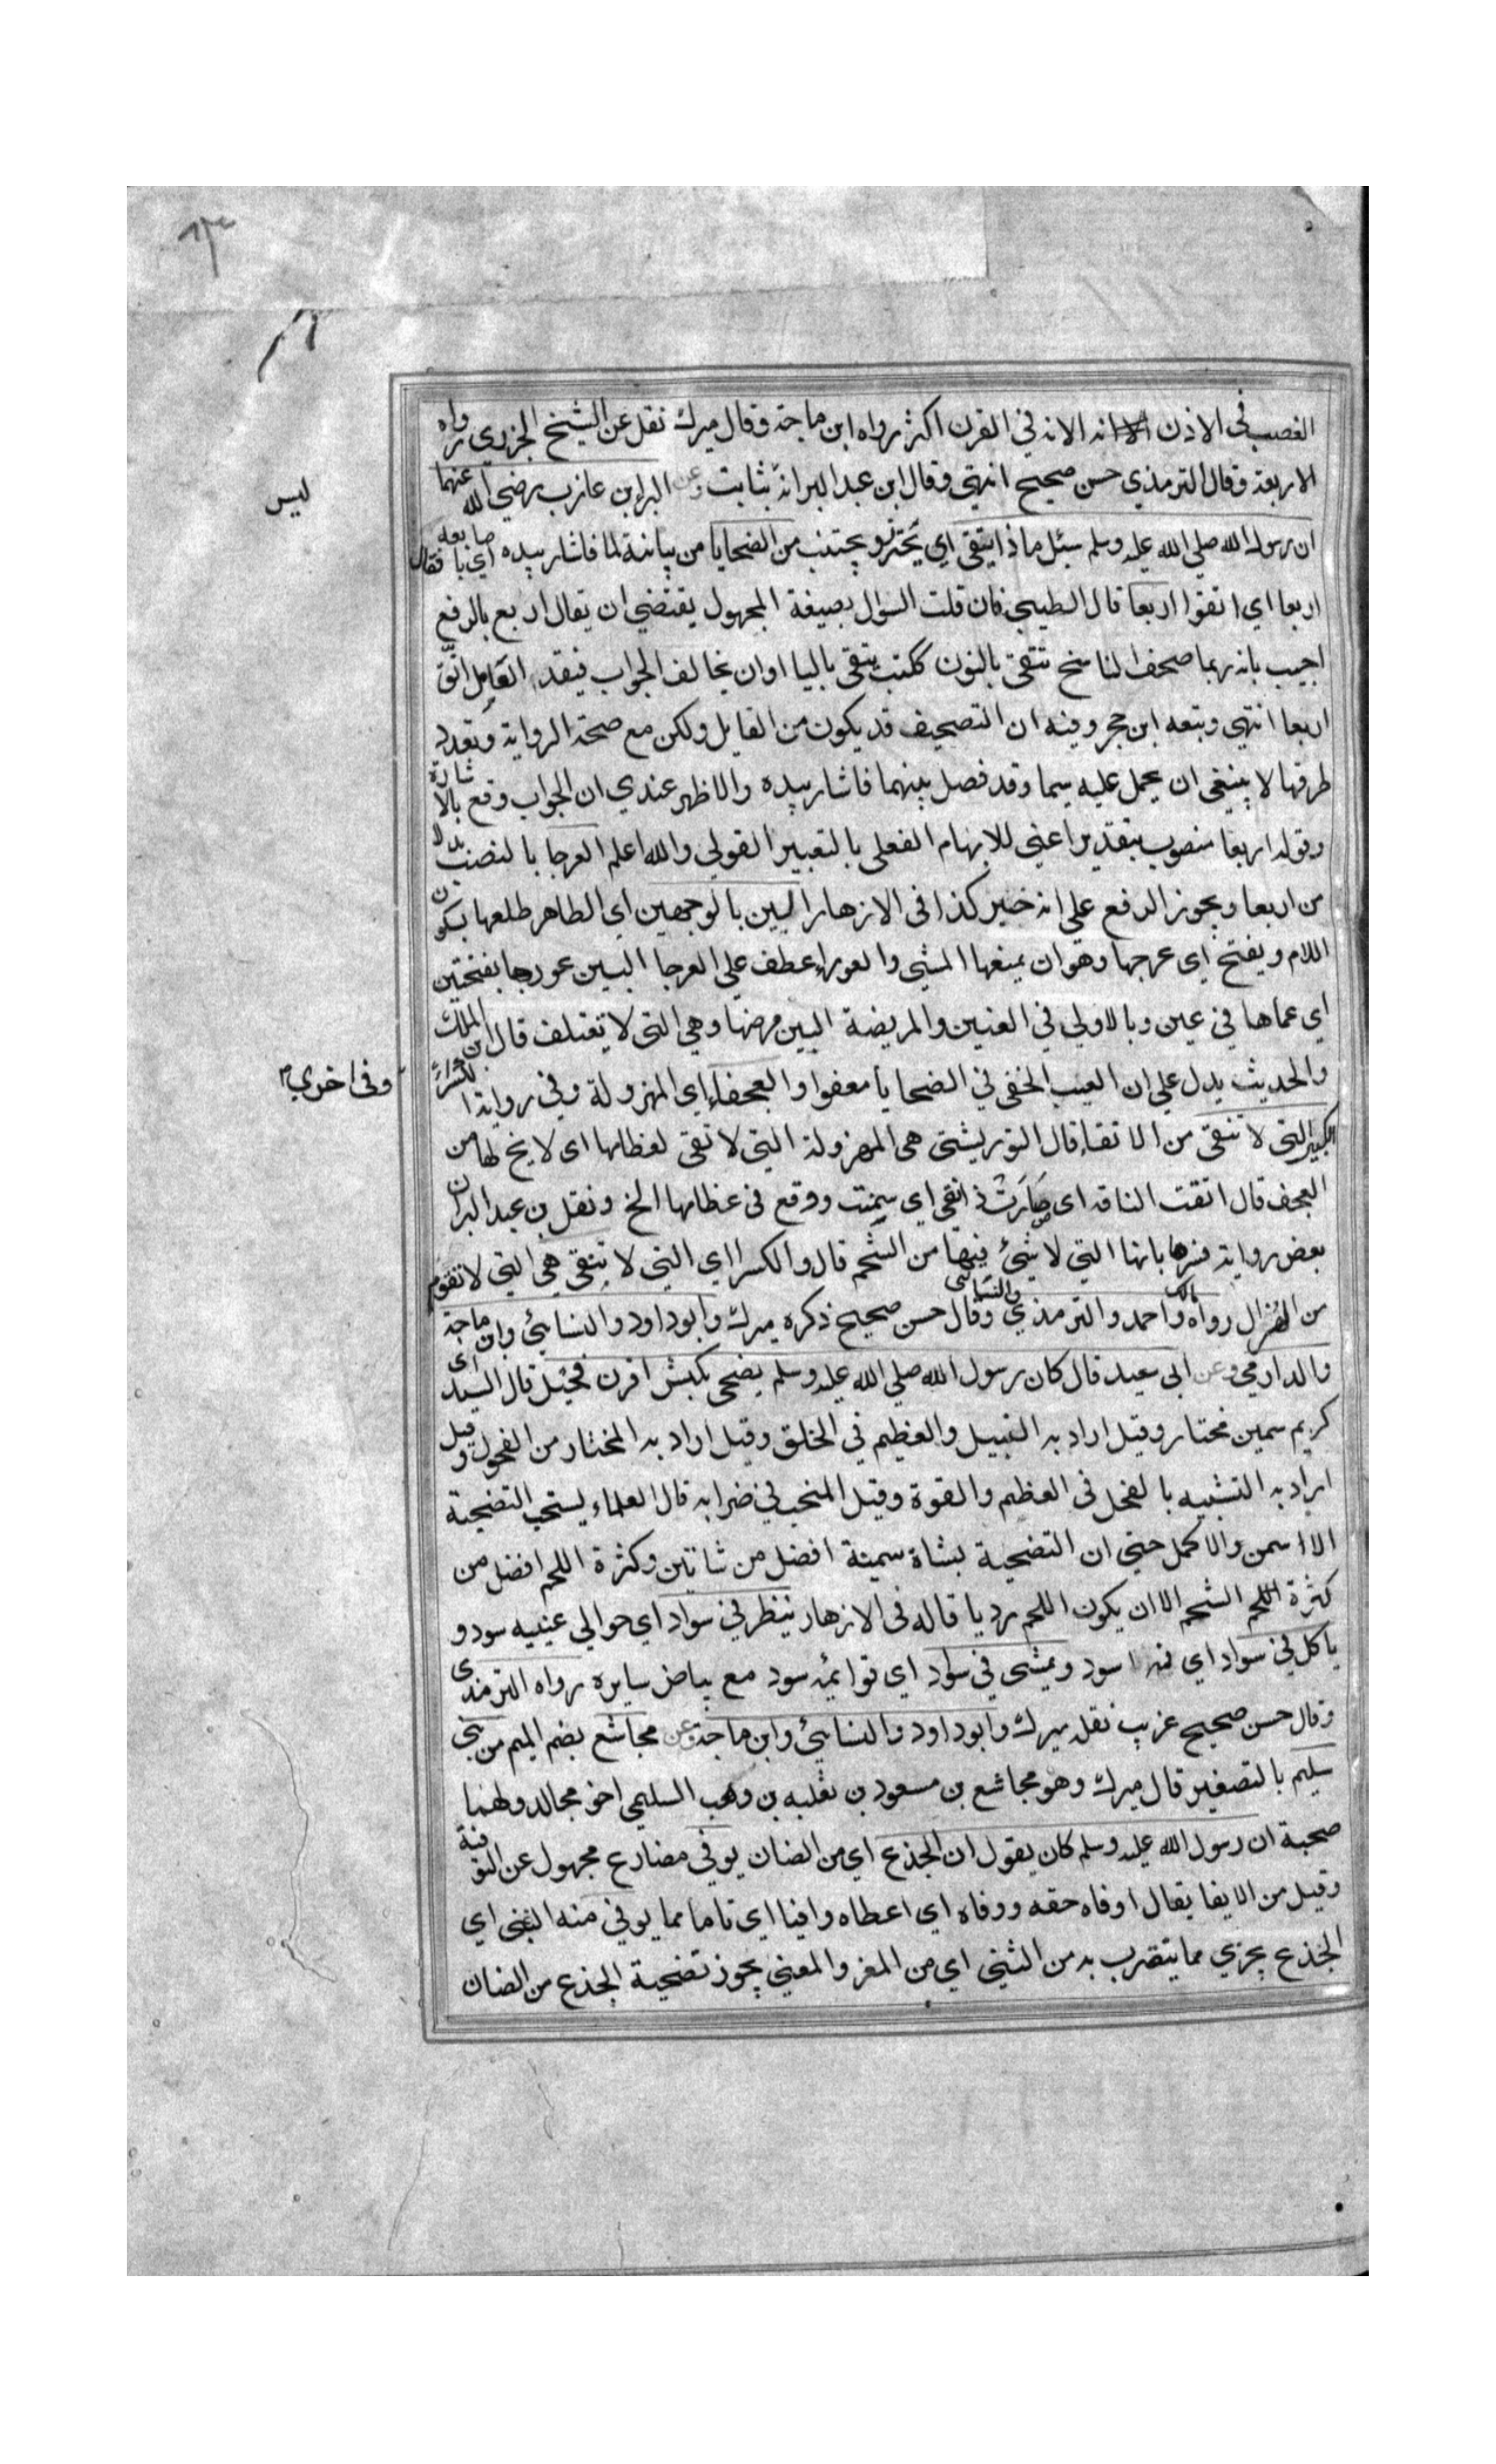 العضب في الاذن الا انه الا انه في القرن اكثر رواه ابن ماجة وقال ميرك نقل عن الشيخ الجزري رواه
الاربعة وقال الترمذي حسن صحيح انتهى وقال ابن عبد البر انه بثابت وعن البراء بن عازب رضي الله عنهما
ليس
ان رسول الله صلى الله عليه وسلم سئل ماذا يتقى اي يحترز ويجتنب من الضحايا من بيانية لما فاشار بيده اي باصابعه فقال
اربعا اي اتقوا اربعا قال الطيبي فان قلت السؤال بصيغة المجهول يقتضي ان يقال اربع بالرفع
اجيب بانه ربما صحف الناسخ نتقى بالنون كتب يتقى باليا او ان يخالف الجواب فيقدر العامل اتق
اربعا انتهى وتبعه ابن حجر وفيه ان التصحيف قد يكون من القايل ولكن مع صحة الرواية وتعدد
طرقها لا ينبغي ان يحمل عليه سيما وقد فصل بينهما فاشار بيده والاظهر عندي ان الجواب وقع بالاشارة
وقوله اربعا منصوب بتقدير اعني للابهام الفعلي بالتعبير القولي والله اعلم العرجا بالنصب بدل
من اربعا ويجوز الرفع على انه خبر كذا في الازهار البين بالوجهين اي الظاهر ظلعها بسكون
اللام ويفتح اي عرجها وهو ان يمنعها المشي والعوراء عطف على العرجا البين عورها بفتحتين
اي عماها في عين وبالاولى في العينين والمريضة البين مرضها وهي التي لا تعتلف قال ابن الملك
والحديث يدل على ان العيب الخفي في الضحايا معفوا والعجفاء اي المهزولة وفي رواية الكسراء
وفي اخرى
الكبير التي لا تنقى من الانقاء قال التوربشتي هي المهزولة التي لا نقى لعظامها اي لا مخ لها من
العجف قال انقت الناقة اي صارت ذ انقي اي سمنت ووقع في عظامها المخ ونقل بن عبد البر ان
بعض رواية فسرها بانها التي لا شئ فيها من الشحم قال والكسرا اي التي لا تنقى هي التي لا تقوم
من الهزال رواه مالك واحمد والترمذي والنسائي وقال حسن صحيح ذكره ميرك وابو داود والنسائي وابن ماجة
والدارمي وعن ابي سعيد قال كان رسول الله صلى الله عليه وسلم يضحي بكبش اقرن فحيل قال السيد اي
كريم سمين مختار وقيل اراد به النبيل والعظيم في الخلق وقيل اراد به المختار من الفحول وقيل
اراد به التشبيه بالفحل في العظم والقوة وقيل المنجب في ضرابه قال العلماء يستحب التضحية
الا اسمن والاكمل حتى ان التضحية بشاة سمينة افضل من شاتين وكثرة اللحم افضل من
كثرة اللحم الشحم الا ان يكون اللحم رديا قاله في الازهار ينظر في سواد اي حوالي عينيه سود و
ياكل في سواد اي فمه اسود ويمشي في سواد اي قوائمه سود مع بياض سايره رواه الترمذي
وقال حسن صحيح غريب نقله ميرك وابو داود والنسائي وابن ماجة وعن مجاشع بضم الميم من بني
سليم بالتصغير قال ميرك وهو مجاشع بن مسعود بن ثعلبه بن وهب السليمي اخو مجالد ولهما
صحبة ان رسول الله عليه وسلم كان يقول ان الجذع اي من الضان يوفي مضارع مجهول عن التوفية
وقيل من الايفا يقال اوفاه حقه ووفاه اي اعطاه وافيا اي تاما مما يوفي منه الثني اي
الجذع يجزي مما يتقرب به من الثني اي من المعز والمعنى يجوز تضحية الجذع من الضان